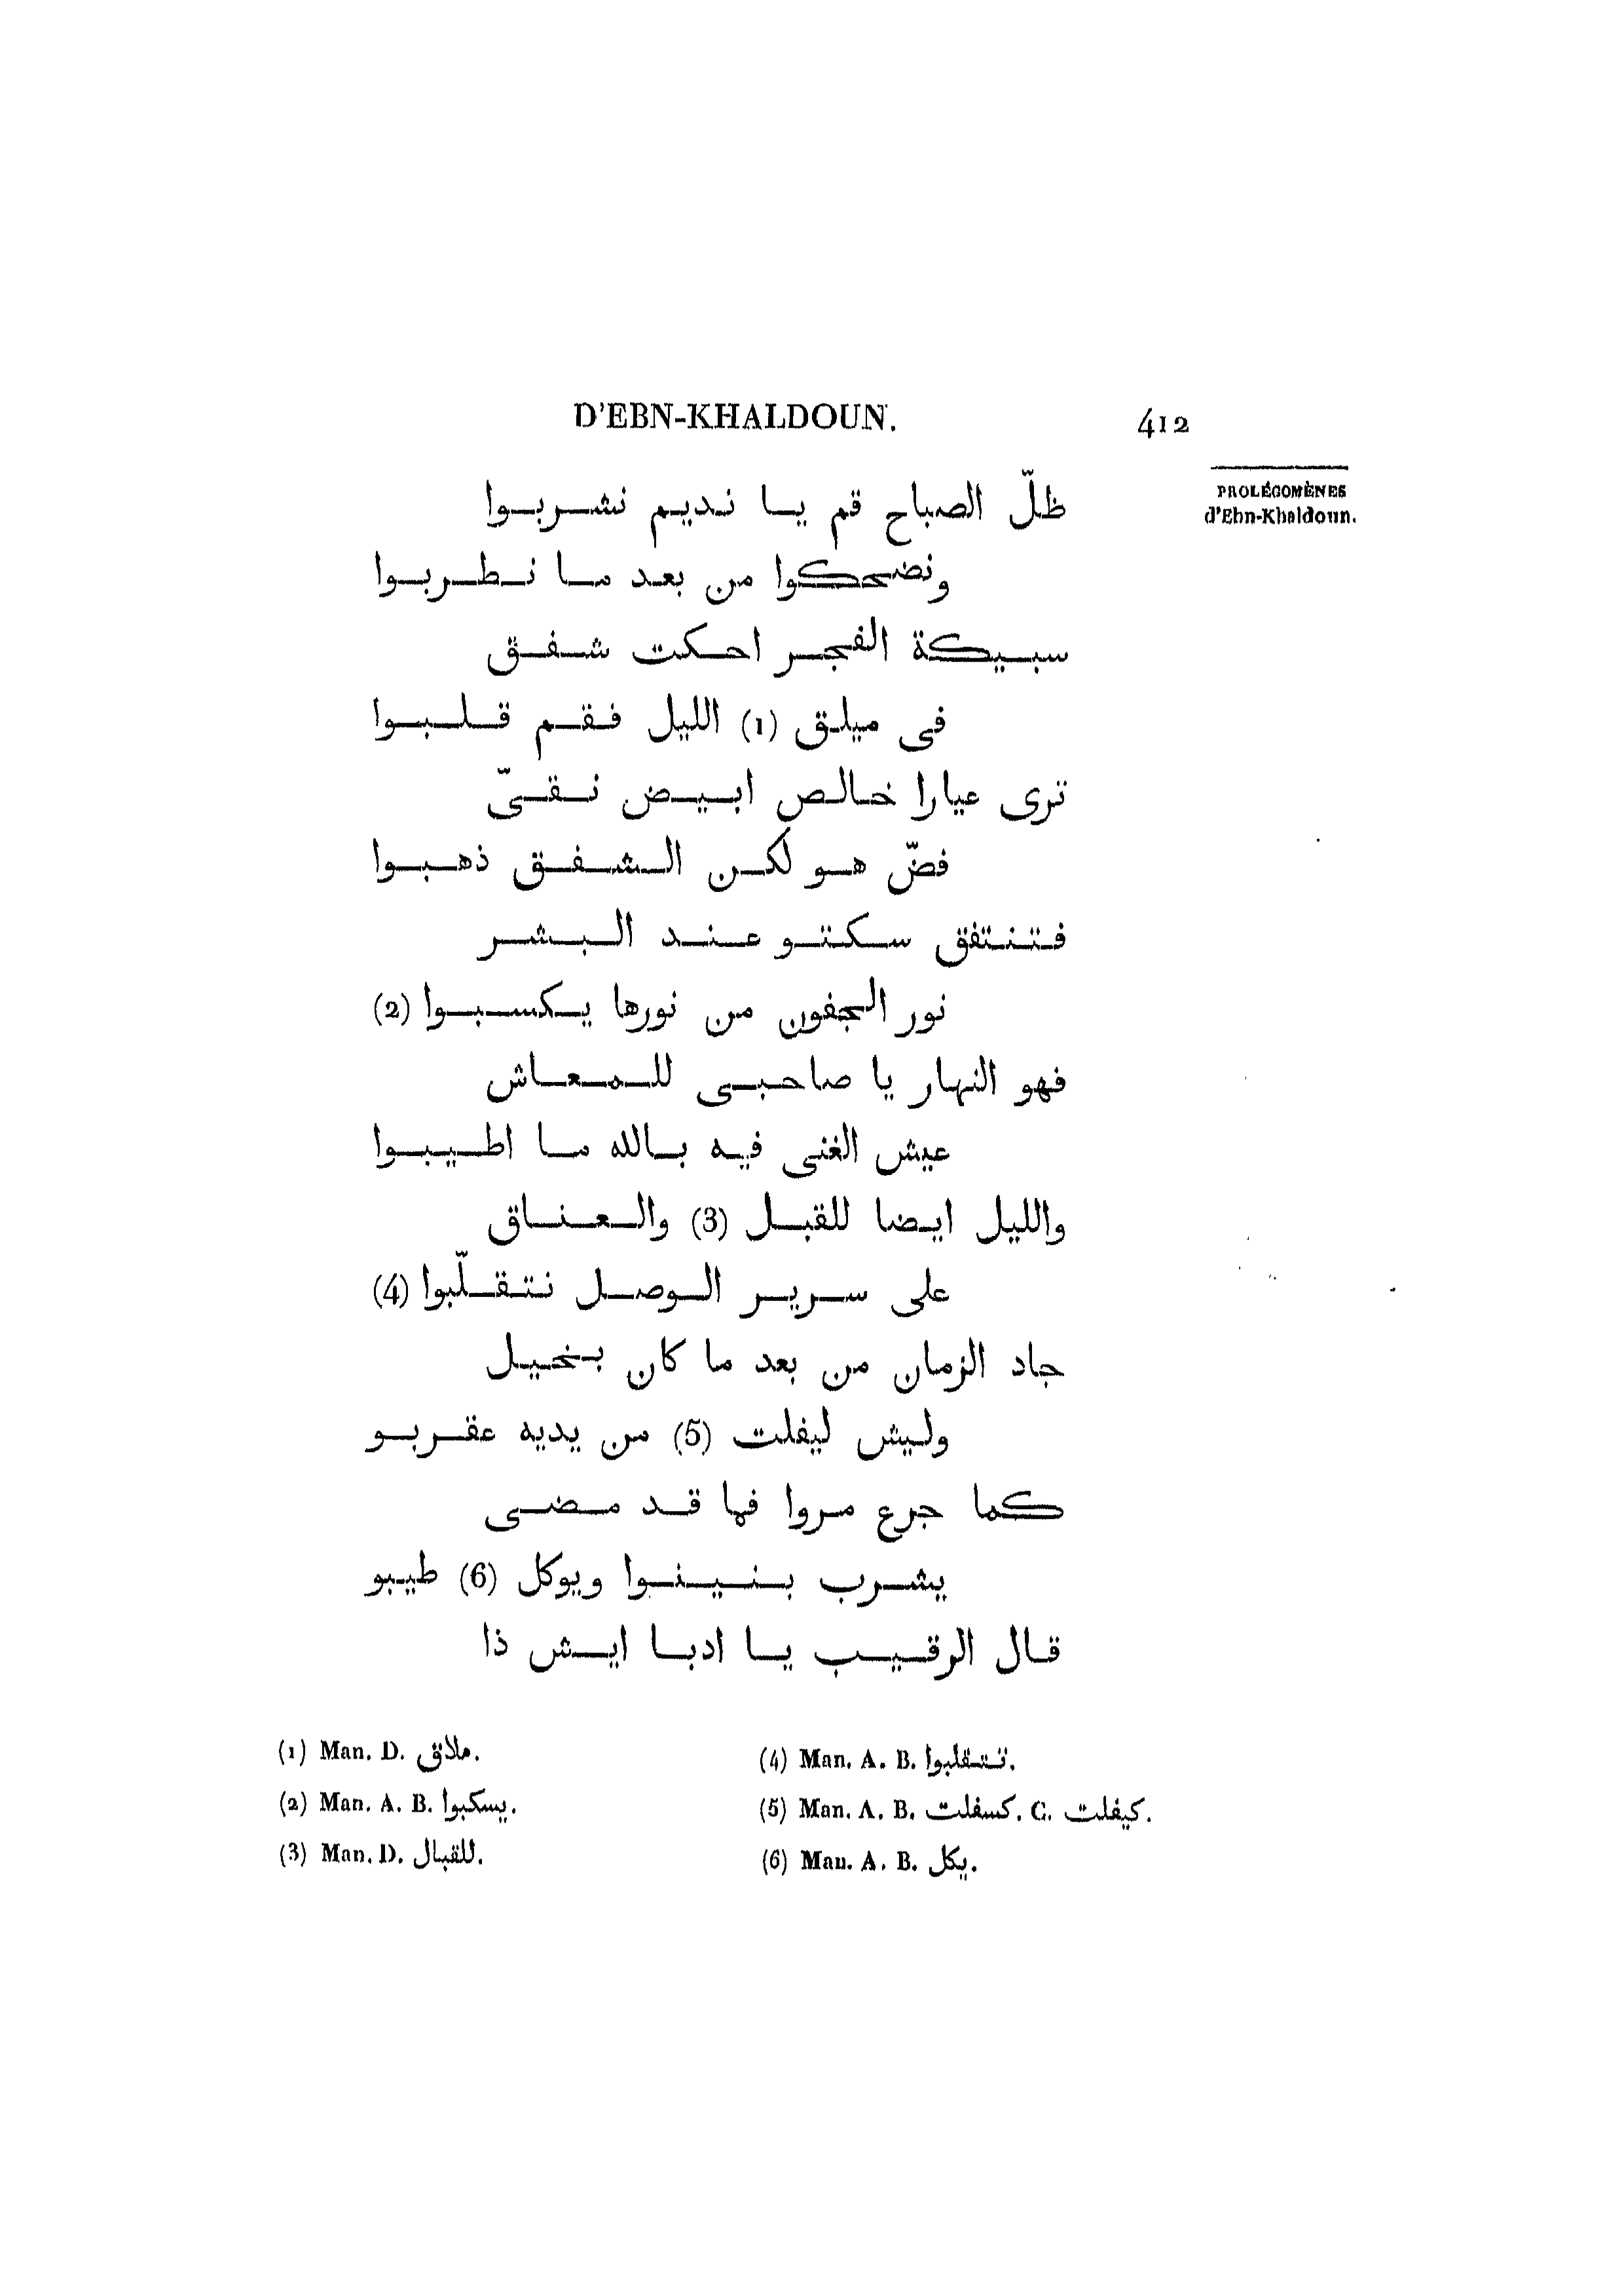 D'EBN-KHALDOUN. 412
PROLÉGOMÈNES
d'Ebn-Khaldoun.
ظلّ الصباح قم يا نديم نشربوا
ونضحكوا من بعد ما نطربوا
سبيكة الفجر احكت شفق
فى ميلق (1) الليل فقم قلبوا
ترى عيارا خالص ابيض نقىّ
فضّ هو لكن الشفق ذهبوا
فتنتفق سكتو عند البشر
نور الجفون من نورها يكسبوا (2)
فهو النهار يا صاحبى للمعاش
عيش الغنى فيه بالله ما اطيبوا
والليل ايضا للقبل (3) والعناق
على سرير الوصل نتقلّبوا (4)
جاد الزمان من بعد ما كان بخيل
وليش ليفلت (5) من يديه عقربو
كما جرع مروا فما قد مضى
يشرب بنينوا ويوكل (6) طيبو
قال الرقيب يا ادبا ايش ذا
(1) Man. D. ملاق.
(2) Man. A. B. يسكبوا.
(3) Man. D. للقبال.
(4) Man. A. B. تتقلبوا.
(5) Man. A. B. كسفلت. C. كيفلت.
(6) Man. A. B. يكل.